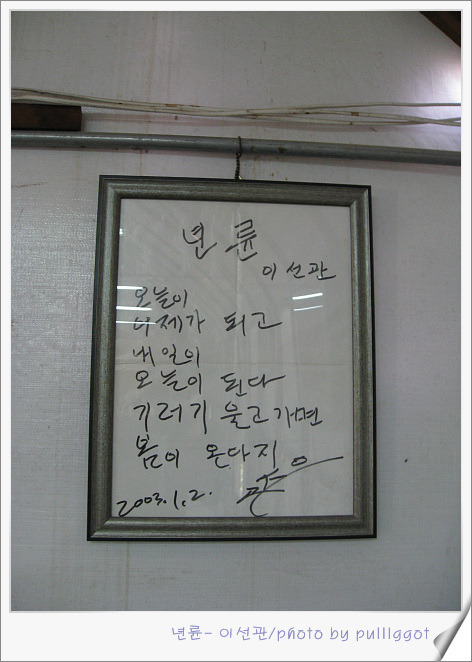 년 륜
이선관
오늘이
어제가 되고
내일의
오늘이 된다
기러기 울고가면
봄이 온다지
2003.1.2.
년륜- 이선관/photo by pulllggot